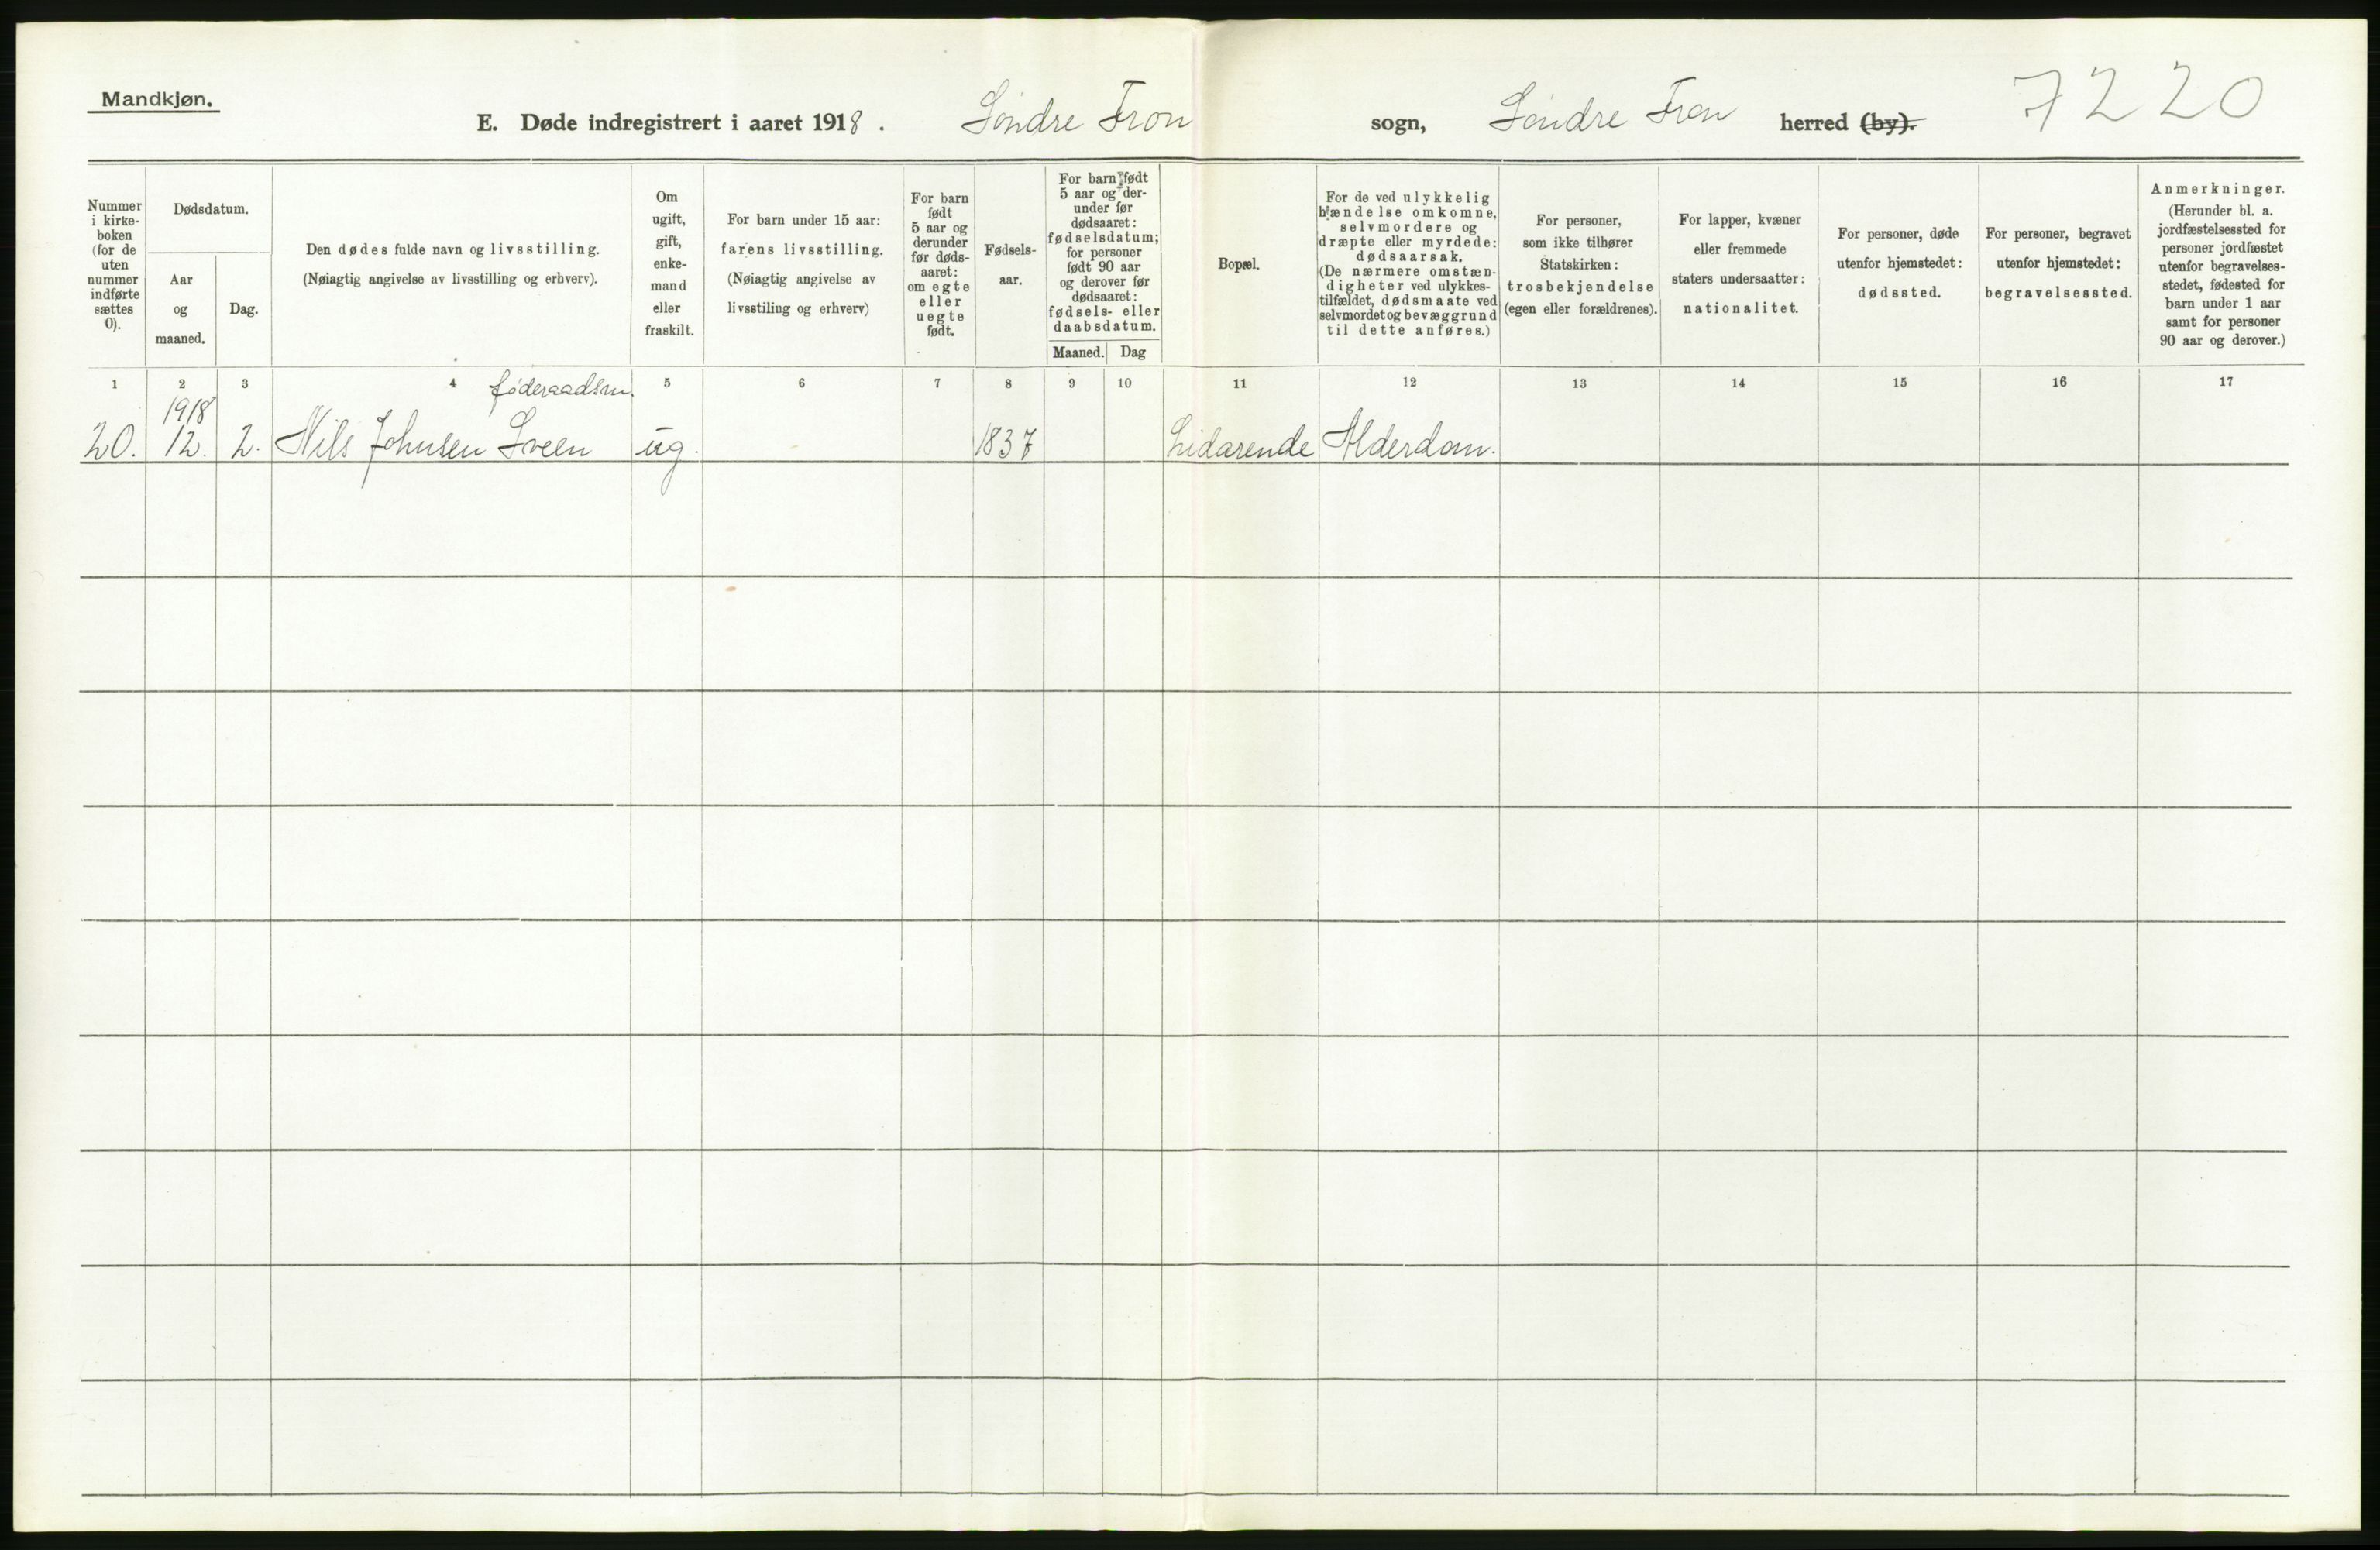 Mandkjøn.
E. Døde indregistrert i aaret 1918. Søndre Fron sogn, Søndre Fron herred (by). 7220
Nummer i kirke-boken (for de uten nummer indførte sættes 0).
Dødsdatum.
Aar og maaned.
Dag.
Den dødes fulde navn og livsstilling.
(Nøiagtig angivelse av livsstilling og erhverv).
Om ugift, gift, enke-mand eller fraskilt.
For barn under 15 aar:
farens livsstilling.
(Nøiagtig angivelse av
livsstiling og erhverv)
For barn født 5 aar og derunder før døds-aaret: om egte eller uegte født.
Fødsels-aar.
For barn født 5 aar og der-under før dødsaaret: fødselsdatum; for personer født 90 aar og derover før dødsaaret: fødsels- eller daabsdatum.
Maaned. Dag
Bopæl.
For de ved ulykkelig hændelse omkomne, selvmordere og dræpte eller myrdede: dødsaarsak.
(De nærmere omstæn-digheter ved ulykkes-tilfældet, dødsmaate ved selvmordet og bevæggrund til dette anføres.)
For personer, som ikke tilhører Statskirken: trosbekjendelse (egen eller forældrenes).
For lapper, kvæner eller fremmede staters undersaatter: nationalitet.
For personer, døde utenfor hjemstedet: dødssted.
For personer, begravet utenfor hjemstedet: begravelsessted.
Anmerkninger.
(Herunder bl. a. jordfæstelsessted for personer jordfæstet utenfor begravelses-stedet, fødested for barn under 1 aar samt for personer 90 aar og derover.)
1 2 3 4 5 6 7 8 9 10 11 12 13 14 15 16 17
1918 føderaadsm.
20. 12. 2. Nils Johnsen Sveen ug. 1837 Lidarende Alderdom.